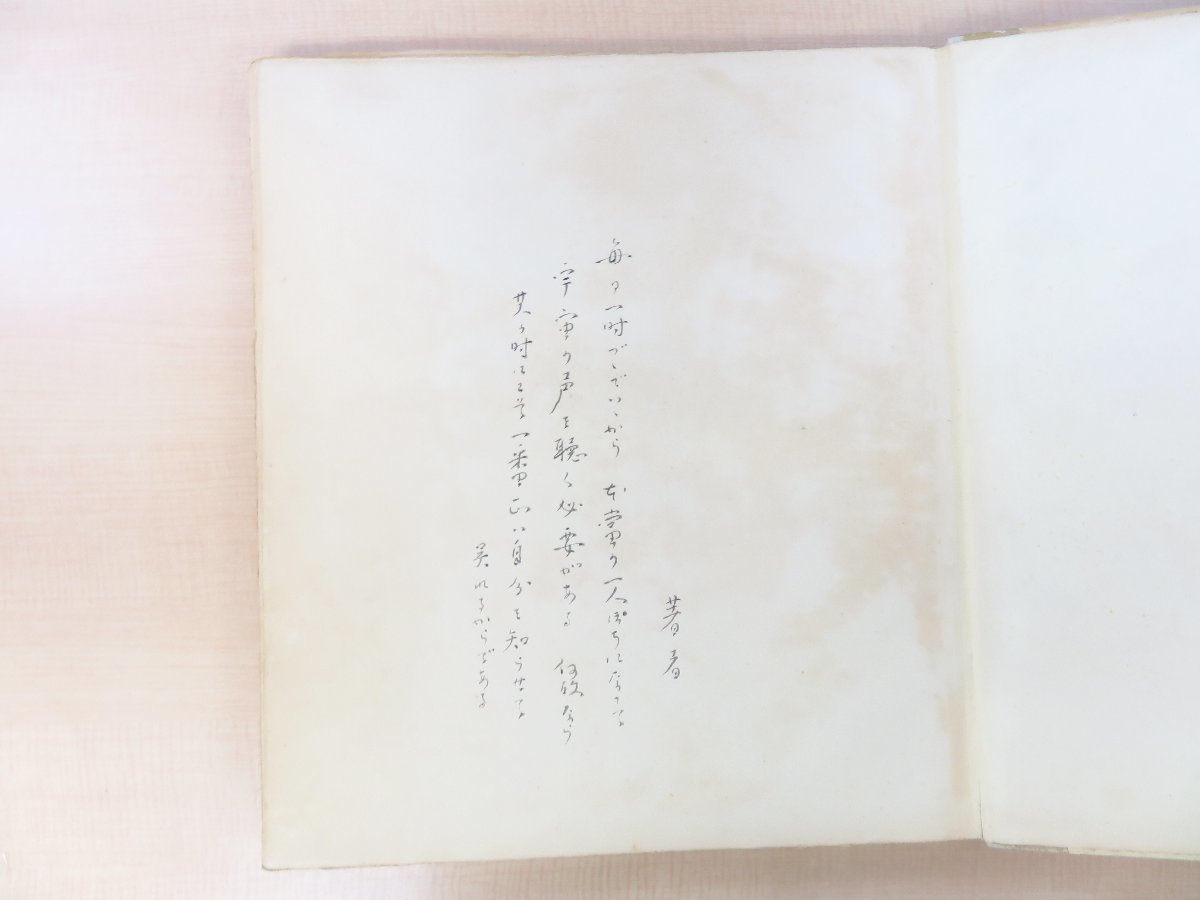 著者
毎日一時づゝでいゝから 本當の一人ぽちになつて
宇宙の声を聴く必要がある 何故なら
其の時にこそ一番正しい自分を知らせて
呉れるからである